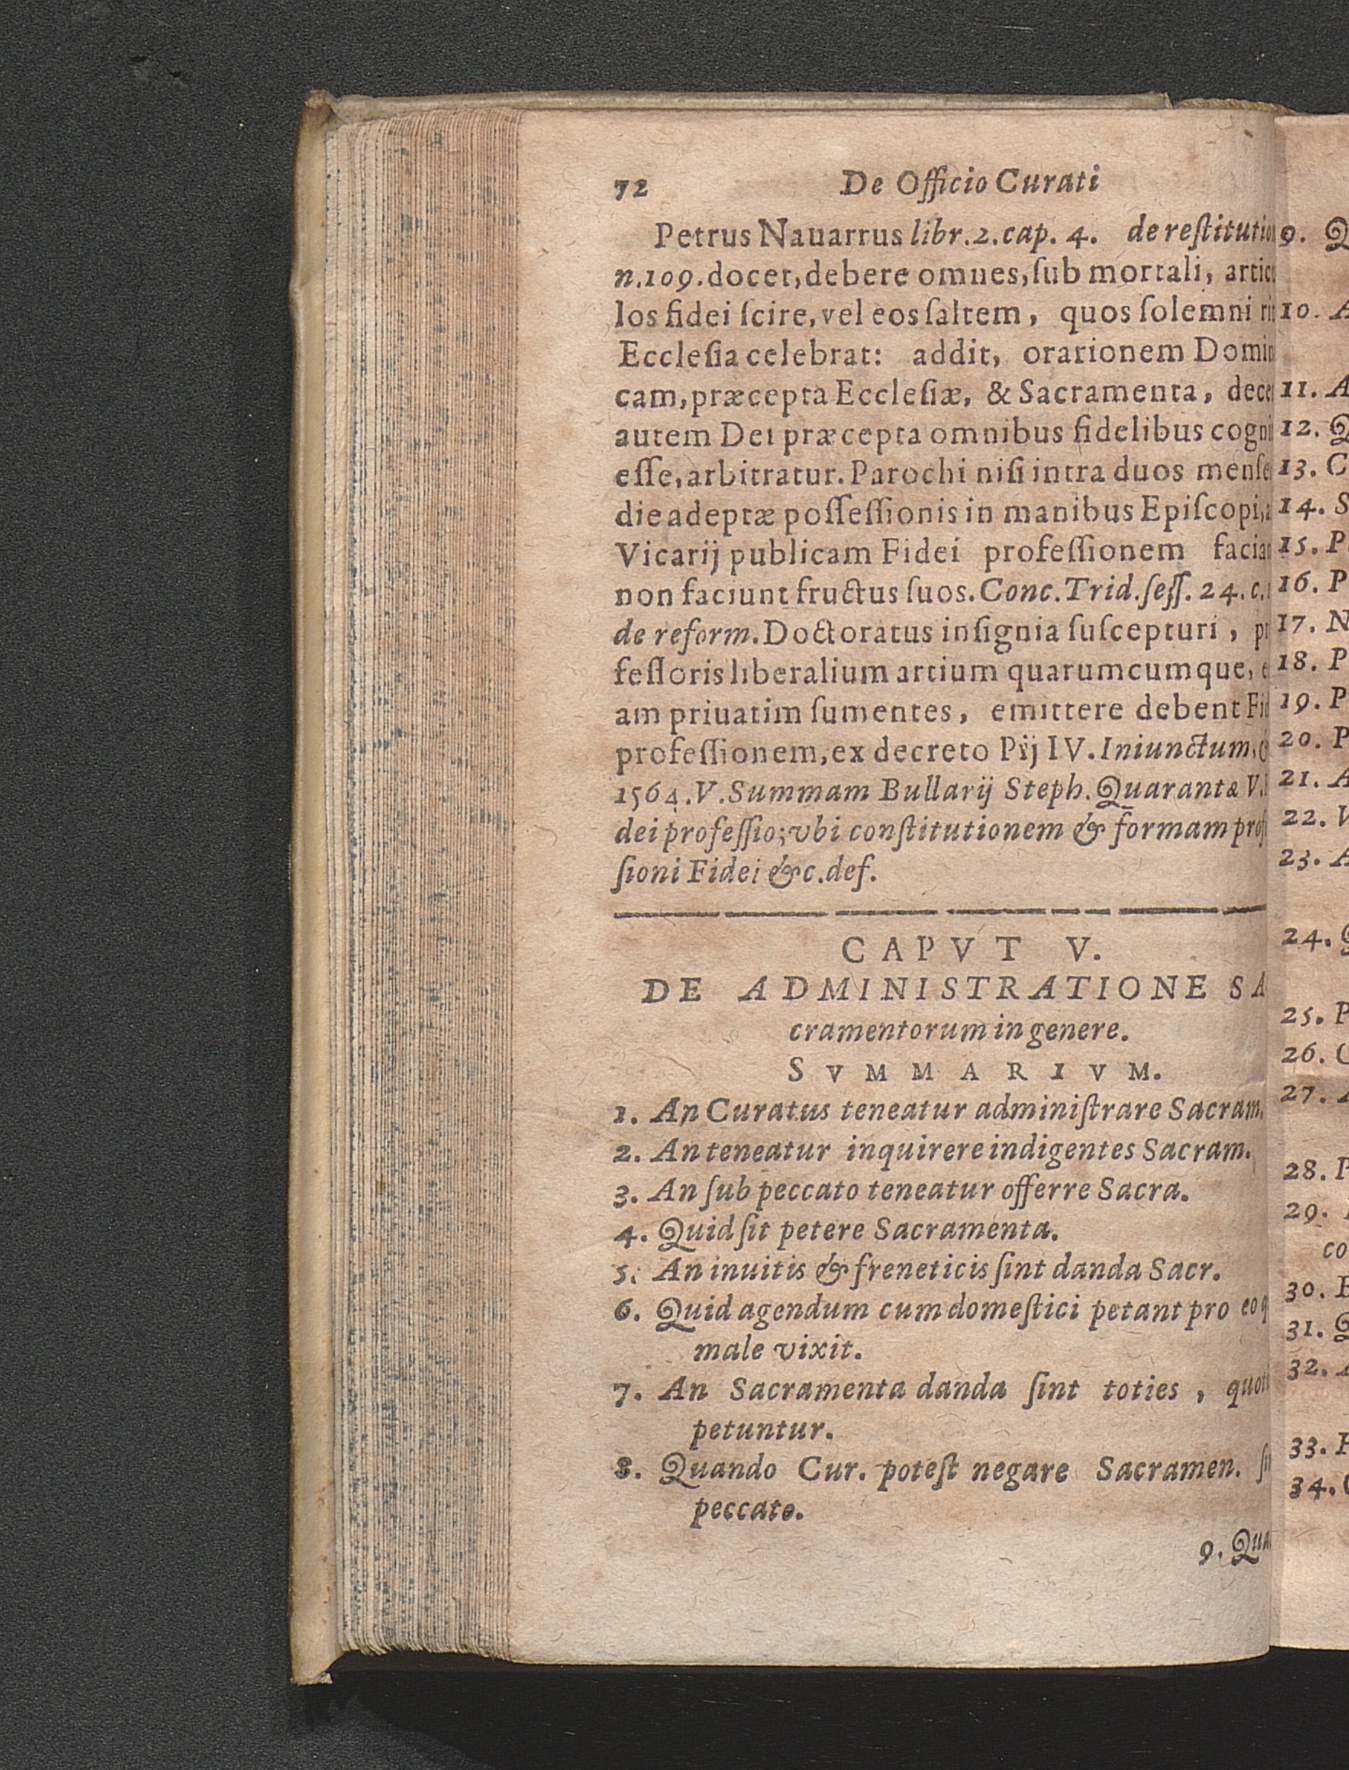 72 De Officio Curati
Petrus Nauarrus libr.2.cap. 4. de restitutio
n.109.docet,debere omnes,ſub mortali, artic
los fidei ſcire,vel eos ſaltem, quos ſolemni rit
Eccleſia celebrat: addit, orationem Domin
cam,præcepta Eccleſiæ, & Sacramenta, dece
autem Dei præcepta omnibus fidelibus cogni
eſſe,arbitratur. Parochi niſi intra duos menſe
die adeptæ poſſeſſionis in manibus Epiſcopi,
Vicarij publicam Fidei profeſſionem facian
non faciunt fructus ſuos. Conc. Trid. ſeſſ. 24. c.
de reform. Doctoratus inſignia ſuſcepturi, pr
feſſoris liberalium artium quarumcumque, e
am priuatim ſumentes, emittere debent Fid
profeſſionem,ex decreto Pij IV. Iniunctum,
1564. V. Summam Bullarij Steph. Quarantæ V.
dei profeſſio;vbi conſtitutionem & formam prof
ſioni Fidei &c.def.
CAPVT V.
DE ADMINISTRATIONE SA
cramentorum in genere.
SVMMARIVM.
1. An Curatus teneatur adminiſtrare Sacram.
2. An teneatur inquirere indigentes Sacram.
3. An ſub peccato teneatur offerre Sacra.
4. Quid ſit petere Sacramenta.
5. An inuitis & freneticis ſint danda Sacr.
6. Quid agendum cum domeſtici petant pro eo q
male vixit.
7. An Sacramenta danda ſint toties, quoti
petuntur.
8. Quando Cur. poteſt negare Sacramen. ſi
peccato.
9. Qua
9. Q
10. A
11. A
12. Q
13. C
14. S
15. P
16. P
17. N
18. P
19. P
20. P
21. A
22. V
23. A
24. Q
25. P
26.
27.
28. P
29.
co
30.
31. Q
32.
33.
34.